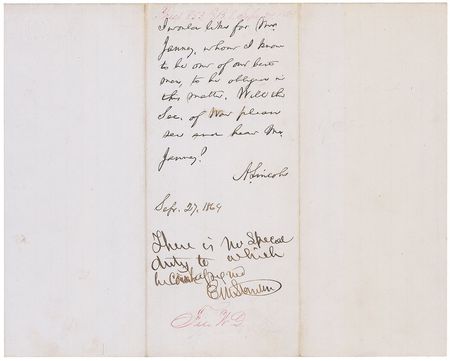 I would like for Mr.
Janney, whom I know
to be one of our best
men, to be obliged in
this matter. Will the
Sec. of War please
see and hear Mr.
Janney?
A. Lincoln
Sept. 27, 1864
There is no special
duty to which
he can be assigned
E M Stanton
File W D